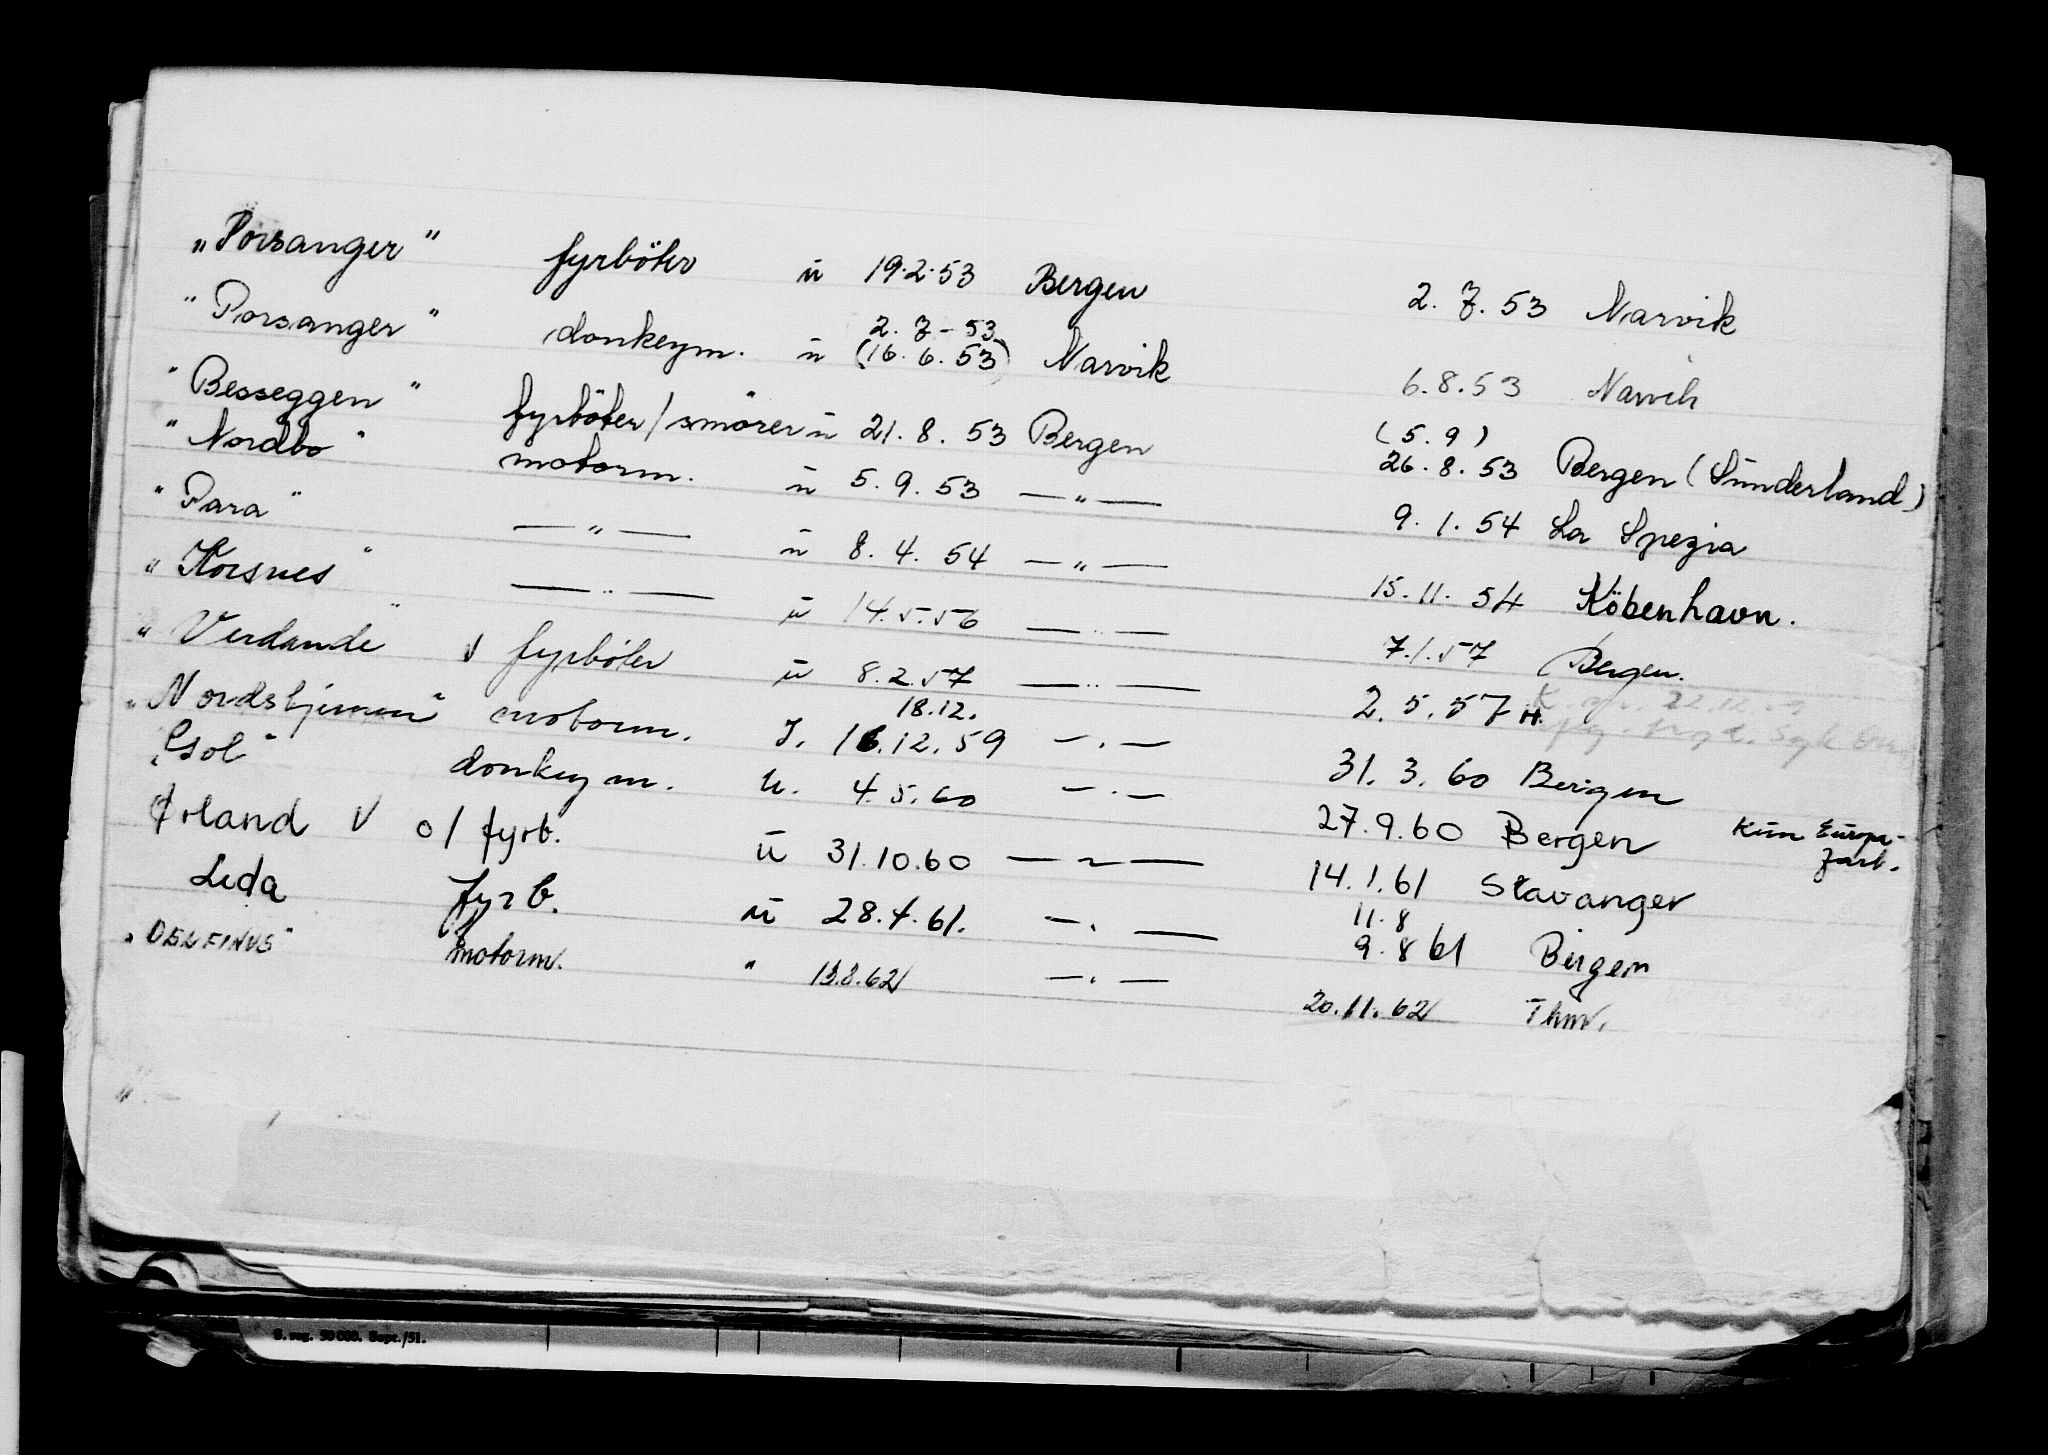 "Porsanger" fyrböter u 19.2.53 Bergen 2.7.53 Narvik
"Porsanger" donkeym. u 2.7-53 (16.6.53) Narvik 6.8.53 Narvik
"Besseggen" fyrböter/smörer u 21.8.53 Bergen (5.9) 26.8.53 Bergen (Sunderland)
"Nordbo" motorm. u 5.9.53 —"— 9.1.54 La Spezia
"Para" —"— u 8.4.54 —"— 15.11.54 Köbenhavn.
"Korsnes" —"— u 14.5.56 —"— 7.1.57 Bergen.
"Verdande" v fyrböter u 8.2.57 —"— 2.5.57 H.
"Nordstjernen" motorm. I. 18.12. 16.12.59 —"— 31.3.60 Bergen
"Gol" donkeym. U. 4.5.60 —"— 27.9.60 Bergen Kun Europa-fart.
Ørland V o/fyrb. u 31.10.60 —"— 14.1.61 Stavanger
Leda fyrb. u 28.4.61. —"— 11.8 9.8 61 Bergen
"DELFINUS" motorm. " 13.8.62 —"— 20.11.62 Thm.
S. reg. 50 000. Sept./51.